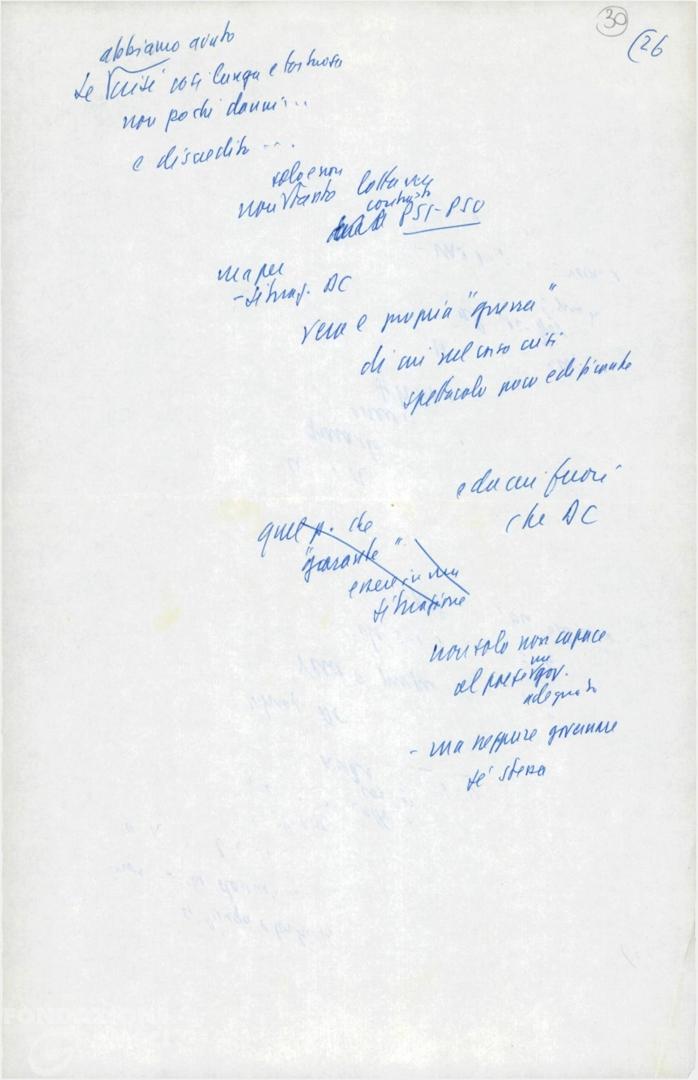 30
(26
abbiamo avuto
se crisi così lunga e tortuosa
non pochi danni...
e discredito...
solo e non
non tanto lotta
contrasto
PSI-PSU
ma per
- situaz. DC
vera e propria "guerra"
di cui nel corso crisi
spettacolo poco edificante
e da cui fuori
che DC
quel p. che
"garante"
essere in una
situazione
non solo non capace
un
al paese gov.
adeguato
- ma neppure governare
se stessa